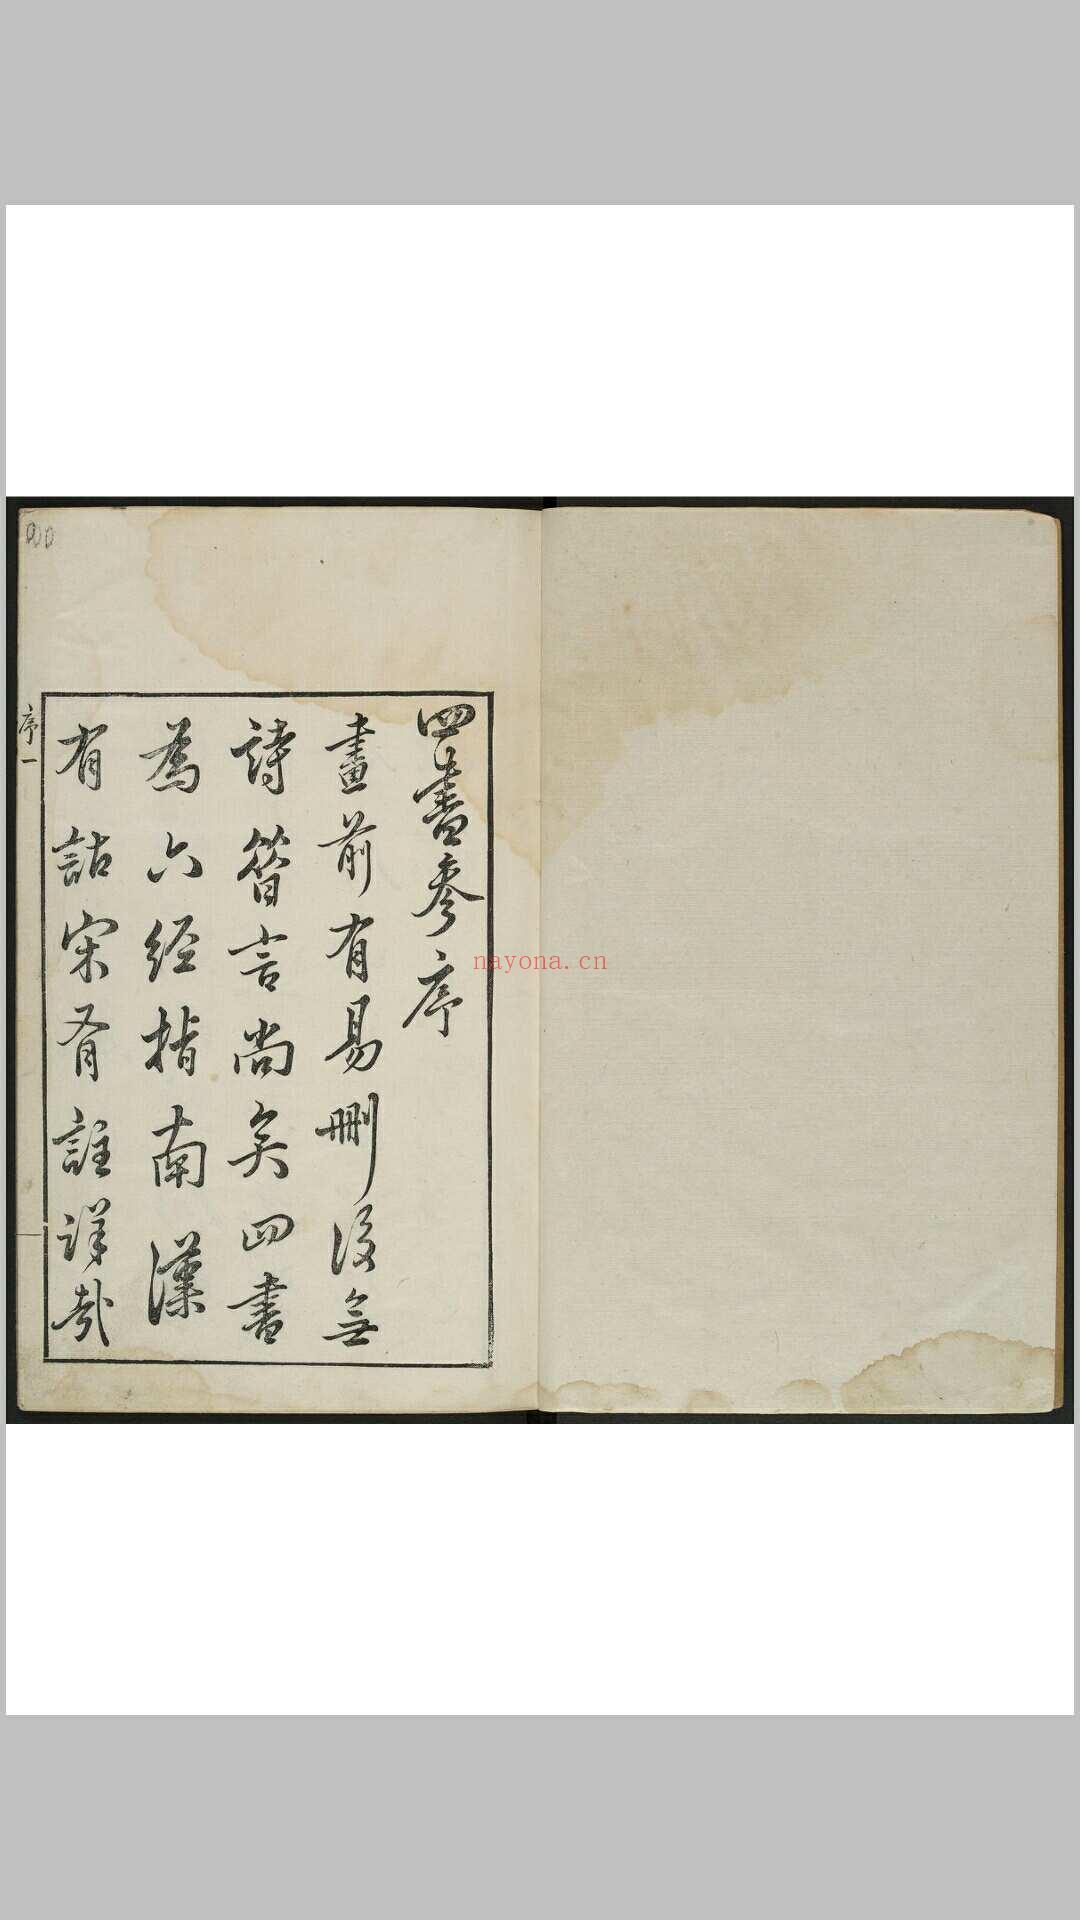 四書參序
畫前有易刪後無
詩簪言尚矣四書
為六經指南漢
有詁宋有註詳哉
序一
nayona.cn